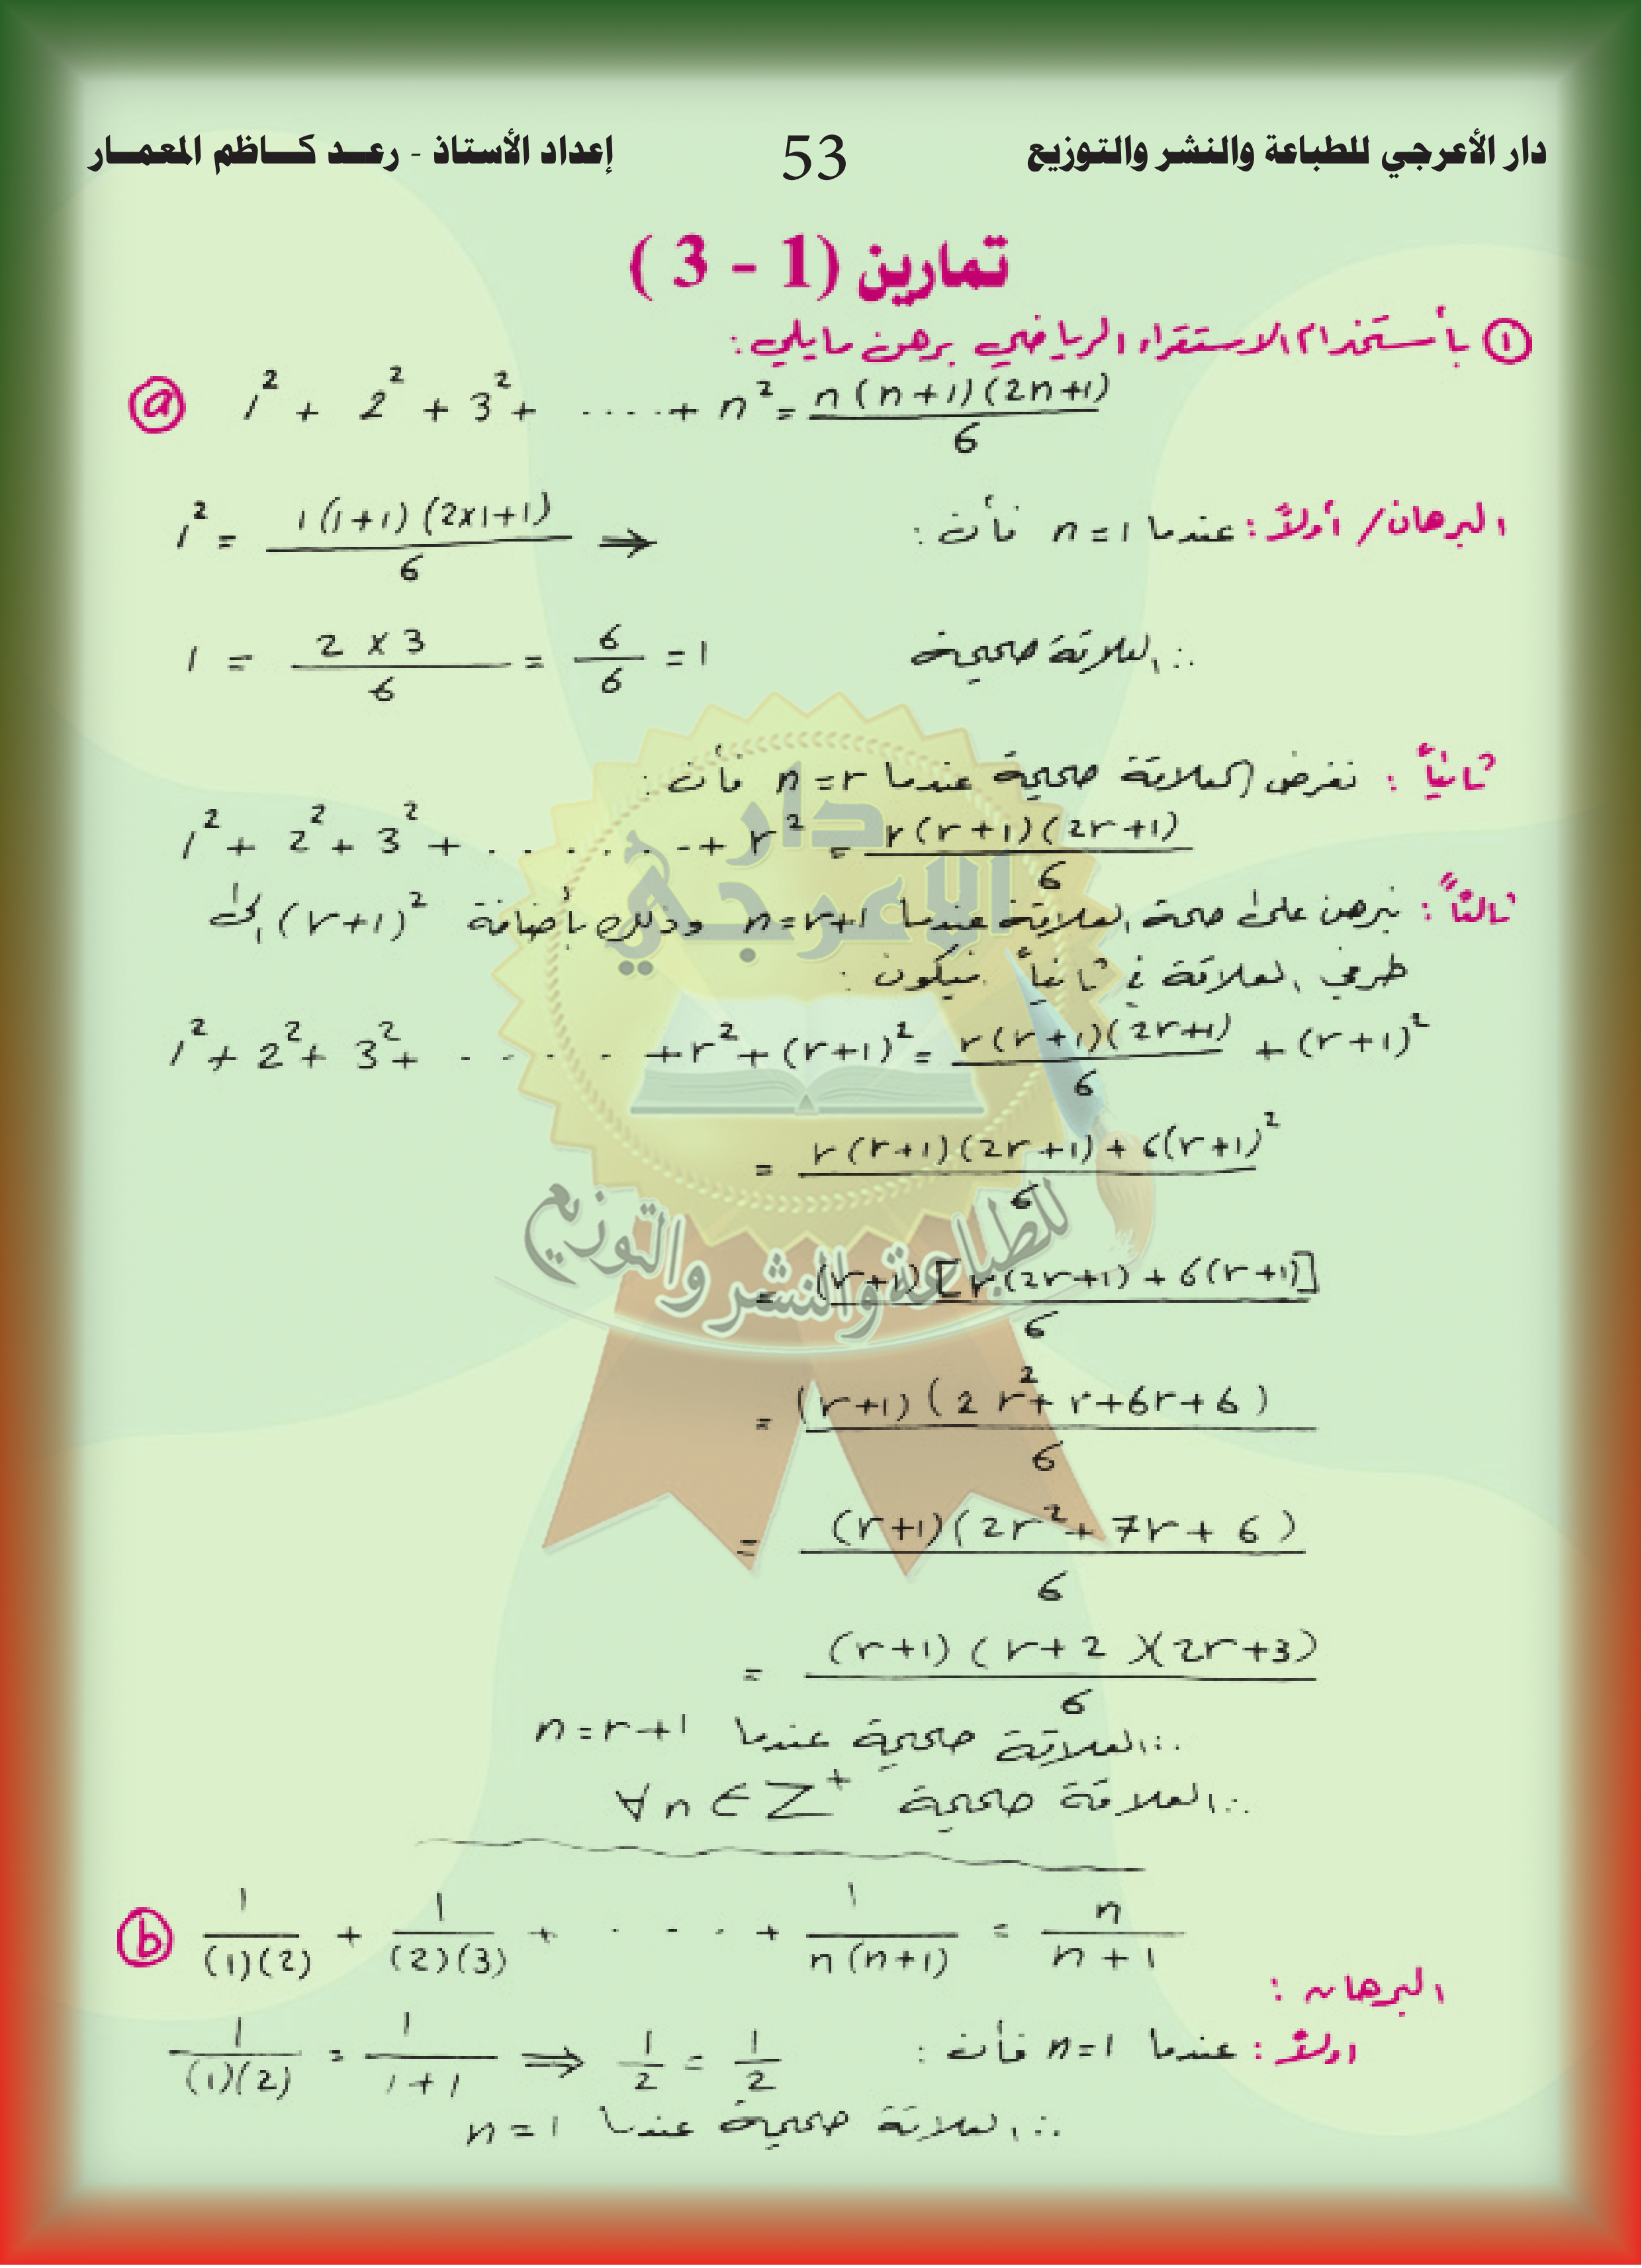 دار الأعرجي للطباعة والنشر والتوزيع 53 إعداد الأستاذ - رعـد كـاظم المعمـار
تمارين (1 - 3)
① بأستخدام الاستقراء الرياضي برهن مايلي:
ⓐ 1² + 2² + 3² + ..... + n² = n(n+1)(2n+1)/6
البرهان/ أولاً: عندما n=1 فأن: 1² = 1(1+1)(2×1+1)/6 ⇒
∴ العلاقة صحيحة 1 = 2×3/6 = 6/6 = 1
ثانياً: نفرض العلاقة صحيحة عندما n=r فأن:
1² + 2² + 3² + ....... + r² = r(r+1)(2r+1)/6
ثالثاً: نبرهن على صحة العلاقة عندما n=r+1 وذلك بأضافة (r+1)² الى
طرفي العلاقة في ثانياً فيكون:
1² + 2² + 3² + ..... + r² + (r+1)² = r(r+1)(2r+1)/6 + (r+1)²
= r(r+1)(2r+1) + 6(r+1)²/6
= (r+1)[r(2r+1) + 6(r+1)]/6
= (r+1)(2r² + r + 6r + 6)/6
= (r+1)(2r² + 7r + 6)/6
= (r+1)(r+2)(2r+3)/6
∴ العلاقة صحيحة عندما n=r+1
∴ العلاقة صحيحة ∀n∈Z⁺
ⓑ 1/(1)(2) + 1/(2)(3) + .... + 1/n(n+1) = n/n+1
البرهان:
اولاً: عندما n=1 فأن: 1/(1)(2) = 1/1+1 ⇒ 1/2 = 1/2
∴ العلاقة صحيحة عندما n=1
دار
الاعرجي
للطباعة والنشر والتوزيع